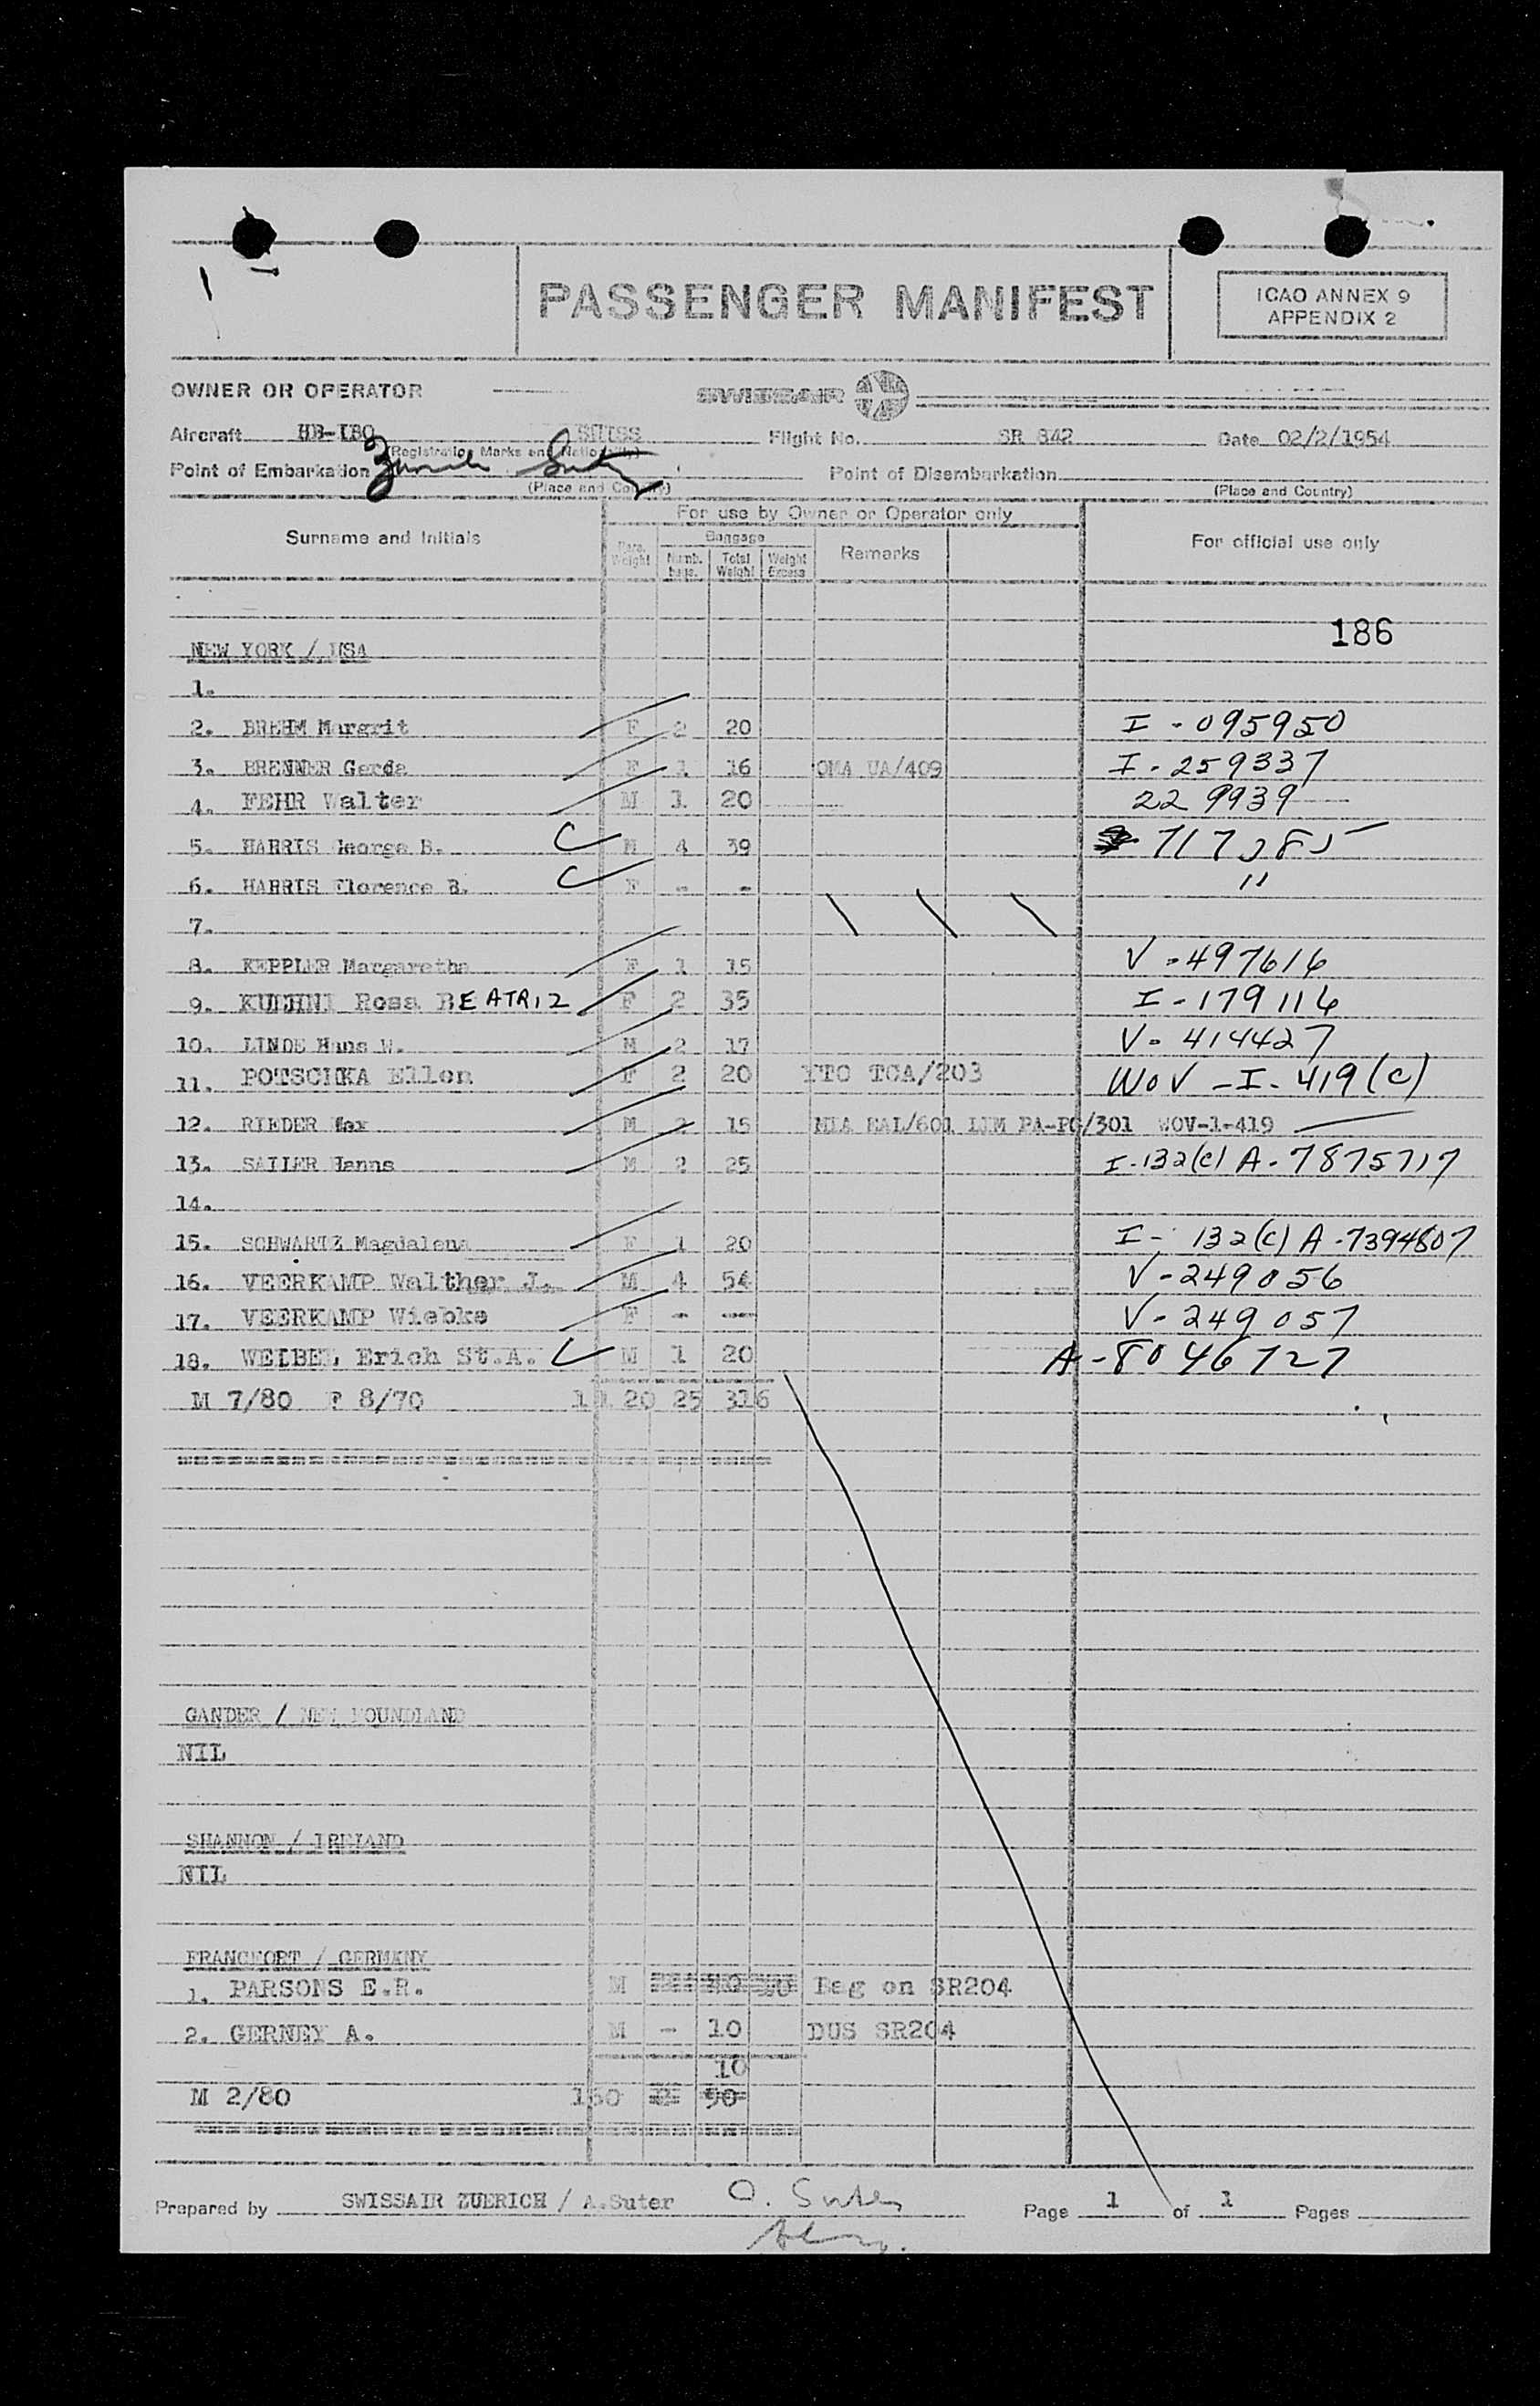 PASSENGER MANIFEST
ICAO ANNEX 9
APPENDIX 2
OWNER OR OPERATOR SWISSAIR
Aircraft SUISS Flight No. SR 842 Date 02/2/1954
(Registration Marks and Nationality)
Point of Embarkation Point of Disembarkation
(Place and Country) (Place and Country)
For use by Owner or Operator only
Surname and Initials Pass. Weight Baggage Remarks For official use only
Numb. bags. Total Weight Weight Excess
186
NEW YORK / USA
1.
2. BREHM Margrit F 2 20 I - 095950
3. BRENNER Gerda F 1 16 OMA UA/409 I - 259337
4. FEHR Walter M 1 20 22 9939
5. HARRIS George B. M 4 39
6. HARRIS Florence B. F - - "
7.
8. KEPPLER Margaretha F 1 15 V - 497616
9. Rosa BEATRIZ F 2 35 I - 179116
10. LINDE Hans W. M 2 17 V - 414427
11. POTSCHKA Ellen F 2 20 YTO TCA/203 WOV - I - 419(c)
12. RIEDER Max M 2 15 MIA EAL/601 LIM PA-PG/301 WOV-1-419
13. SAILER Hanns M 2 25 I-132(c) A-7875717
14.
15. SCHWARTZ Magdalena F 1 20 I - 132(c) A-7394807
16. VEERKAMP Walther J. M 4 54 V - 249056
17. VEERKAMP Wiebke F - -- V - 249057
18. WEIBEL Erich St.A. M 1 20 A-8046727
M 7/80 F 8/70 11 20 25 316
GANDER / NEW FOUNDLAND
NIL
SHANNON / IRELAND
NIL
FRANCFORT / GERMANY
1. PARSONS E.R. M Bag on SR204
2. GERNEY A. M - 10 DUS SR204
10
M 2/80 160 50
Prepared by SWISSAIR ZUERICH / A.Suter Page 1 of 1 Pages